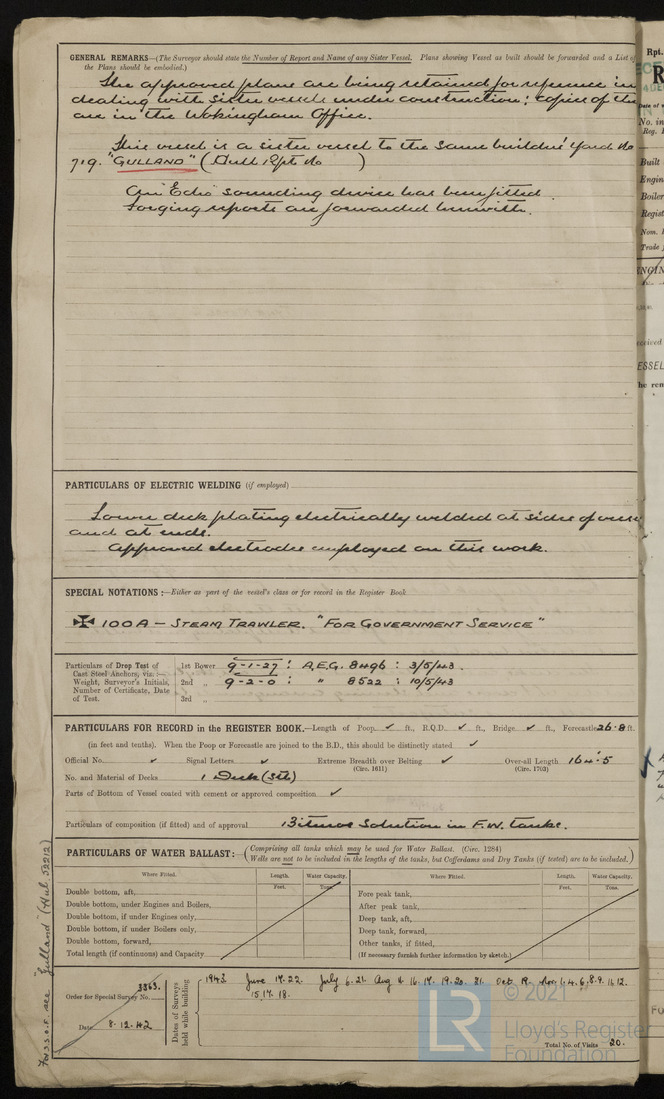 GENERAL REMARKS—(The Surveyor should state the Number of Report and Name of any Sister Vessel. Plans showing Vessel as built should be forwarded and a List of
the Plans should be embodied.)
The approved plans are being retained for reference in
dealing with sister vessels under construction; copies of the
are in the Wokingham Office.
This vessel is a sister vessel to the same builders' Yard No
719. "GULLAND" (Hull Rpt No )
An "Echo" sounding device has been fitted.
Forging reports are forwarded herewith.
PARTICULARS OF ELECTRIC WELDING (if employed)
Lower deck plating electrically welded at sides of vessel
and at ends.
Approved electrodes employed on this work.
SPECIAL NOTATIONS :—Either as part of the vessel's class or for record in the Register Book
✠ 100A – STEAM TRAWLER. "FOR GOVERNMENT SERVICE"
Particulars of Drop Test of
Cast Steel Anchors, viz :—
Weight, Surveyor's Initials,
Number of Certificate, Date
of Test.
1st Bower 9-1-27 : A.E.G. 8496 : 3/5/43.
2nd „ 9-2-0 : " 8522 : 10/5/43
3rd „
PARTICULARS FOR RECORD in the REGISTER BOOK.—Length of Poop ✓ ft., R.Q.D. ✓ ft., Bridge ✓ ft., Forecastle 26.8 ft.
(in feet and tenths). When the Poop or Forecastle are joined to the B.D., this should be distinctly stated ✓
Official No. ✓ Signal Letters ✓ Extreme Breadth over Belting ✓ Over-all Length 164.5
(Circ. 1611) (Circ. 1703)
No. and Material of Decks 1 Deck (Stl)
Parts of Bottom of Vessel coated with cement or approved composition ✓
Particulars of composition (if fitted) and of approval Bitumos Solution in F.W. tanks.
PARTICULARS OF WATER BALLAST :— (Comprising all tanks which may be used for Water Ballast. (Circ. 1284)
Wells are not to be included in the lengths of the tanks, but Cofferdams and Dry Tanks (if tested) are to be included.)
Where Fitted. Length. Water Capacity. Where Fitted. Length. Water Capacity.
Feet. Tons. Feet. Tons.
Double bottom, aft,
Double bottom, under Engines and Boilers,
Double bottom, if under Engines only,
Double bottom, if under Boilers only,
Double bottom, forward,
Total length (if continuous) and Capacity
Fore peak tank,
After peak tank,
Deep tank, aft,
Deep tank, forward,
Other tanks, if fitted,
(If necessary furnish further information by sketch.)
Order for Special Survey No. 3363.
Date 8.12.42
Dates of Surveys
held while building
1943 June 17. 22. July 6. 21. Aug 11. 16. 17. 19. 20. 31. Oct 19. Nov 1. 4. 6. 8. 9. 11. 12.
15. 17. 18.
Total No. of Visits 20.
see "Gulland" (Hul 52212)
© 2021
LR
Lloyd's Register
Foundation
Rpt.
No. in
Reg.
Built
Engin
Boiler
Regist
Nom.
Trade